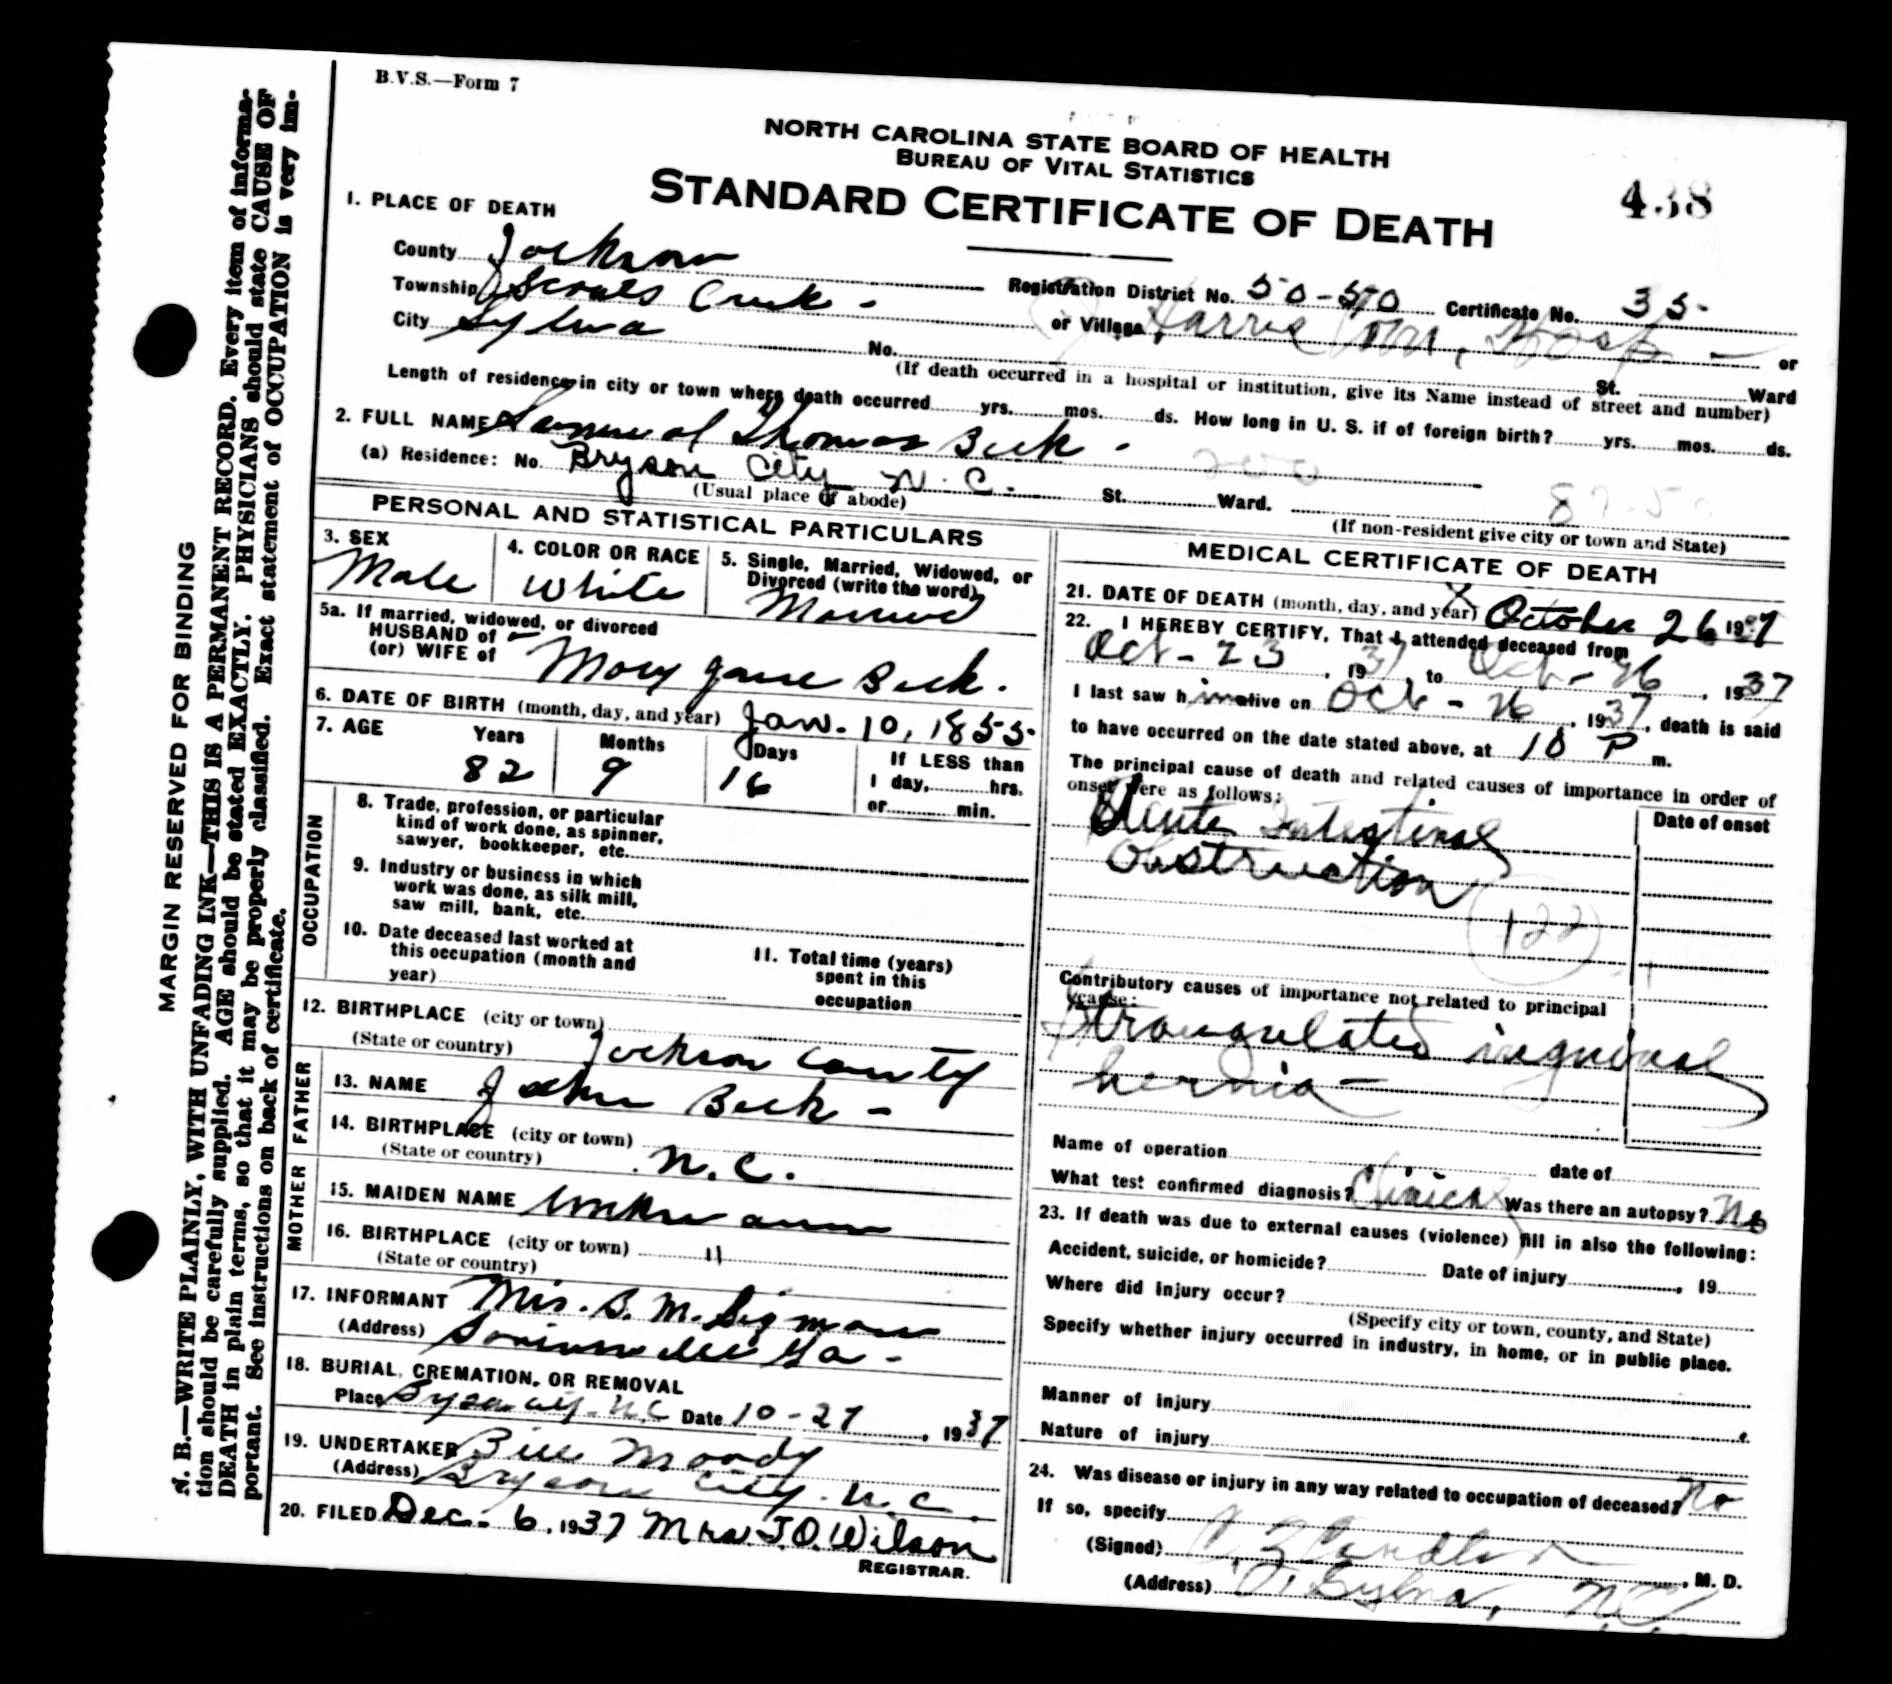 B.V.S.—Form 7
NORTH CAROLINA STATE BOARD OF HEALTH
BUREAU OF VITAL STATISTICS
STANDARD CERTIFICATE OF DEATH
438
1. PLACE OF DEATH
County Jackson
Registration District No. 50-570 Certificate No. 35-
Township Scotts Creek -
or Village Harris Com. Hosp - or
City Sylva No. St. Ward
(If death occurred in a hospital or institution, give its Name instead of street and number)
Length of residence in city or town where death occurred yrs. mos. ds. How long in U. S. if of foreign birth? yrs. mos. ds.
2. FULL NAME Samuel Thomas Beck -
(a) Residence: No. Bryson City N. C. St. Ward.
(Usual place of abode)
(If non-resident give city or town and State)
PERSONAL AND STATISTICAL PARTICULARS
3. SEX
Male
4. COLOR OR RACE
White
5. Single, Married, Widowed, or
Divorced (write the word)
Married
5a. If married, widowed, or divorced
HUSBAND of
(or) WIFE of
Mary Jane Beck.
6. DATE OF BIRTH (month, day, and year) Jan. 10, 1855-
7. AGE Years Months Days If LESS than
82 9 16 1 day, hrs.
or min.
OCCUPATION
8. Trade, profession, or particular
kind of work done, as spinner,
sawyer, bookkeeper, etc.
9. Industry or business in which
work was done, as silk mill,
saw mill, bank, etc.
10. Date deceased last worked at
this occupation (month and
year)
11. Total time (years)
spent in this
occupation
12. BIRTHPLACE (city or town)
(State or country) Jackson County
FATHER
13. NAME John Beck -
14. BIRTHPLACE (city or town)
(State or country) N.C.
MOTHER
15. MAIDEN NAME Unknown
16. BIRTHPLACE (city or town) "
(State or country)
17. INFORMANT Mrs. B. M. Sigmon
(Address) Ga -
18. BURIAL, CREMATION, OR REMOVAL
Place Bryson City N.C. Date 10-27, 1937
19. UNDERTAKER Bill Moody
(Address) Bryson City. N.C.
20. FILED Dec. 6, 1937 Mrs. J.O. Wilson
REGISTRAR.
MEDICAL CERTIFICATE OF DEATH
21. DATE OF DEATH (month, day, and year) October 26 1937
22. I HEREBY CERTIFY, That I attended deceased from
Oct - 23, 1937 to Oct - 26, 1937
I last saw him alive on Oct - 26, 1937, death is said
to have occurred on the date stated above, at 10 P m.
The principal cause of death and related causes of importance in order of
onset were as follows:
Date of onset
Acute Intestinal
Obstruction
122
Contributory causes of importance not related to principal
cause:
Strangulated inguinal
hernia -
Name of operation date of
What test confirmed diagnosis? Clinical Was there an autopsy? No
23. If death was due to external causes (violence) fill in also the following:
Accident, suicide, or homicide? Date of injury, 19
Where did injury occur?
(Specify city or town, county, and State)
Specify whether injury occurred in industry, in home, or in public place.
Manner of injury
Nature of injury
24. Was disease or injury in any way related to occupation of deceased? No
If so, specify
(Signed) Candler, M. D.
(Address) Sylva, N.C.
MARGIN RESERVED FOR BINDING
N. B.—WRITE PLAINLY, WITH UNFADING INK—THIS IS A PERMANENT RECORD. Every item of informa-
tion should be carefully supplied. AGE should be stated EXACTLY. PHYSICIANS should state CAUSE OF
DEATH in plain terms, so that it may be properly classified. Exact statement of OCCUPATION is very im-
portant. See instructions on back of certificate.